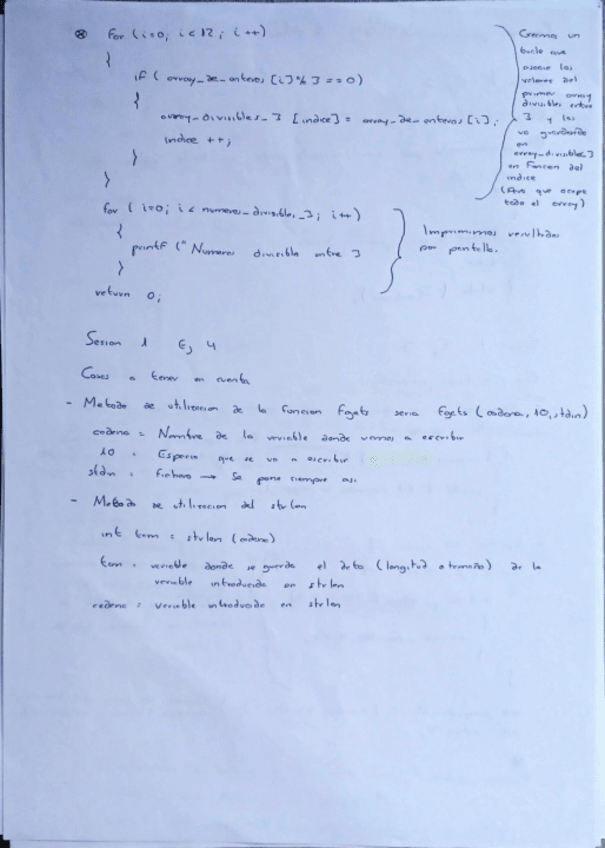 ⊗ For (i=0; i<12; i++)
{
if ( array_de_enteros [i] % 3 == 0)
{
array_divisibles_3 [indice] = array_de_enteros [i];
indice ++;
}
}
Creamos un
bucle que
asocie los
valores del
primer array
divisibles entre
3 y los
va guardando
en
array_divisibles_3
en Funcion del
indice
(Hay que ocupe
todo el array)
for ( i=0; i < numeros_divisibles_3; i++)
{
printf (" Numeros divisible entre 3
}
Imprimimos resultados
por pantalla.
return 0;
Sesion 1 Ej 4
Cosas a tener en cuenta
- Metodo de utilizacion de la funcion Fgets seria Fgets (cadena, 10, stdin)
cadena = Nombre de la variable donde vamos a escribir
10 = Espacio que se va a escribir
stdin = Fichero → Se pone siempre asi
- Metodo de utilizacion del strlen
int tam = strlen (cadena)
tam = variable donde se guarda el dato (longitud o tamaño) de la
variable introducida en strlen
cadena = variable introducida en strlen